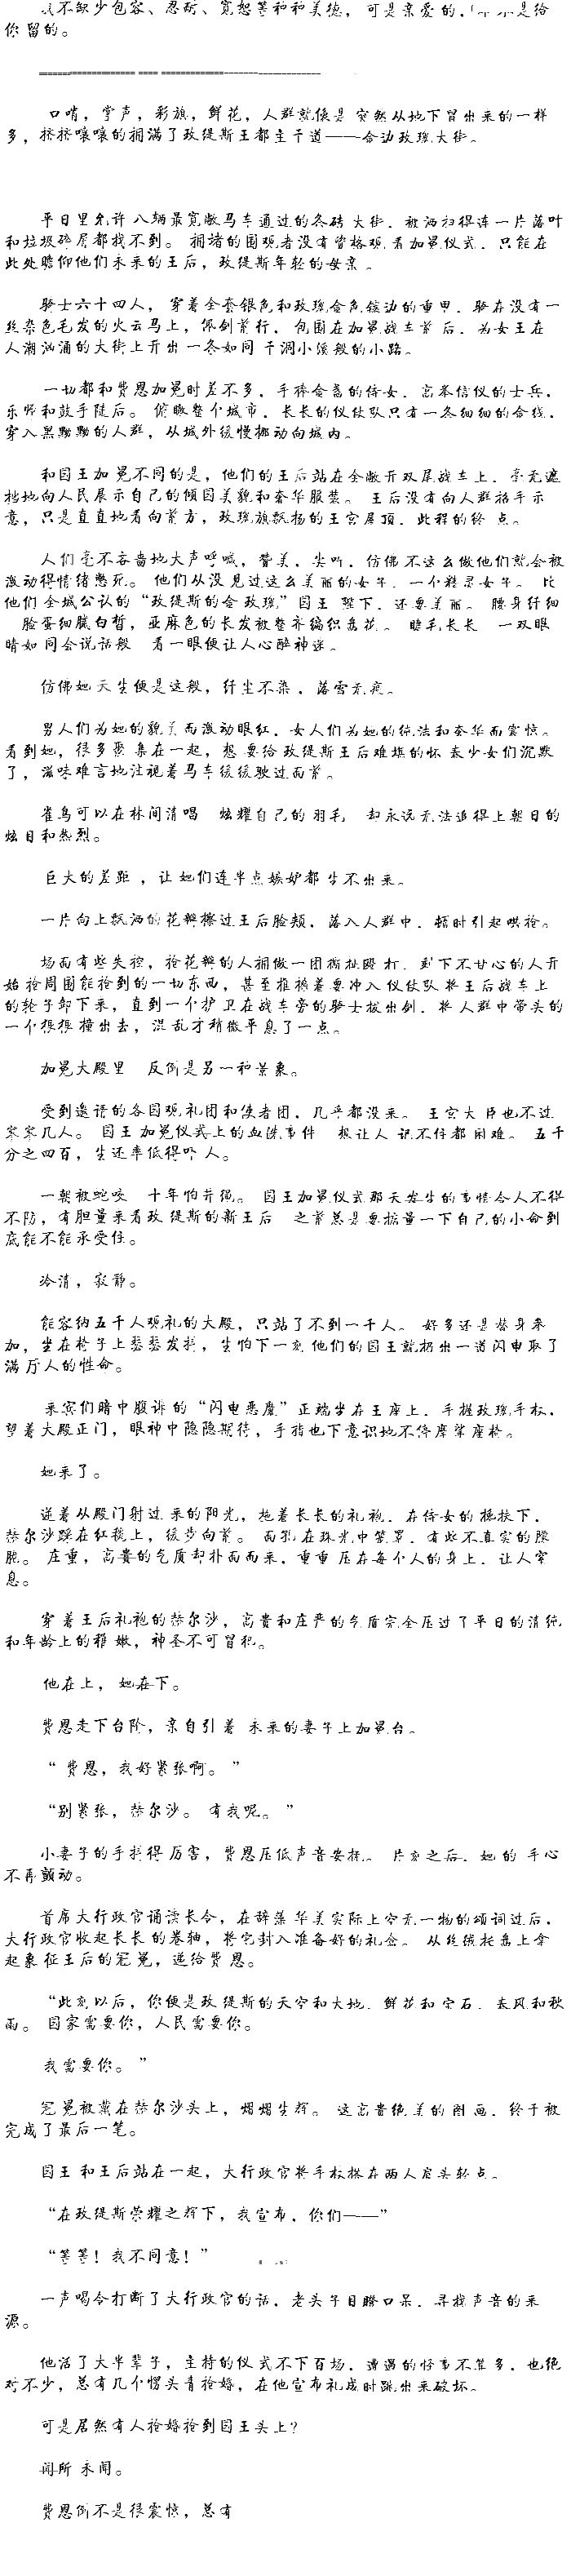 我不缺少包容、忍耐、宽恕等种种美德，可是亲爱的，
你留的。
口哨，掌声，彩旗，鲜花，人群就像是突然从地下冒出来的一样
多，挤挤嚷嚷的拥满了玫缇斯王都主干道——金边玫瑰大街。
平日里允许八辆最宽敞马车通过的条砖大街，被洒扫得连一片落叶
和垃圾碎屑都找不到。拥堵的围观者没有资格观看加冕仪式，只能在
此处瞻仰他们未来的王后，玫缇斯年轻的母亲。
骑士六十四人，穿着全套银色和玫瑰金色镶边的重甲，骑在没有一
丝杂色毛发的火云马上，佩剑前行，包围在加冕战车前后，为女王在
人潮汹涌的大街上开出一条如同干涸小溪般的小路。
一切都和费恩加冕时差不多，手捧金盏的侍女，高举信仪的士兵，
乐师和鼓手随后。俯瞰整个城市，长长的仪仗队只有一条细细的金线，
穿入黑黝黝的人群，从城外缓慢挪动向城内。
和国王加冕不同的是，他们的王后站在全敞开双层战车上，毫无遮
挡地向人民展示自己的倾国美貌和奢华服装。王后没有向人群招手示
意，只是直直地看向前方，玫瑰旗飘扬的王宫屋顶，此程的终点。
人们毫不吝啬地大声呼喊，赞美，尖叫，仿佛不这么做他们就会被
激动得情绪憋死。他们从没见过这么美丽的女子，一个精灵女子。比
他们全城公认的“玫缇斯的金玫瑰”国王陛下，还要美丽。腰身纤细
脸蛋细腻白皙，亚麻色的长发被整齐编织盘花。睫毛长长 一双眼
睛如同会说话般 看一眼便让人心醉神迷。
仿佛她天生便是这般，纤尘不染，落雪无痕。
男人们为她的貌美而激动眼红，女人们为她的纯洁和奢华而震惊。
看到她，很多聚集在一起，想要给玫缇斯王后难堪的怀春少女们沉默
了，滋味难言地注视着马车缓缓驶过面前。
雀鸟可以在林间清唱 炫耀自己的羽毛 却永远无法追得上朝日的
炫目和热烈。
巨大的差距，让她们连半点嫉妒都生不出来。
一片向上飘洒的花瓣擦过王后脸颊，落入人群中，顿时引起哄抢。
场面有些失控，抢花瓣的人拥做一团撕扯殴打，剩下不甘心的人开
始抢周围能抢到的一切东西，甚至推搡着要冲入仪仗队将王后战车上
的轮子卸下来，直到一个护卫在战车旁的骑士拔出剑，将人群中带头的
一个狠狠撞出去，混乱才稍微平息了一点。
加冕大殿里 反倒是另一种景象。
受到邀请的各国观礼团和使者团，几乎都没来。王宫大臣也不过
寥寥几人。国王加冕仪式上的血洗事件 想让人记不住都困难。五千
分之四百，生还率低得吓人。
一朝被蛇咬 十年怕井绳。国王加冕仪式那天发生的事情令人不得
不防，有胆量来看玫缇斯的新王后 之前总是要掂量一下自己的小命到
底能不能承受住。
冷清，寂静。
能容纳五千人观礼的大殿，只站了不到一千人。好多还是替身来
加，坐在椅子上瑟瑟发抖，生怕下一刻他们的国王就扔出一道闪电取了
满厅人的性命。
来宾们暗中腹诽的“闪电恶魔”正端坐在王座上，手握玫瑰手杖，
望着大殿正门，眼神中隐隐期待，手指也下意识地不停摩挲座椅。
她来了。
逆着从殿门射过来的阳光，拖着长长的礼袍，在侍女的搀扶下，
赫尔沙踩在红毯上，缓步向前。面孔在珠光中笼罩，有些不真实的朦
胧。庄重，高贵的气质却扑面而来，重重压在每个人的身上，让人窒
息。
穿着王后礼袍的赫尔沙，高贵和庄严的气质完全压过了平日的清纯
和年龄上的稚嫩，神圣不可冒犯。
他在上，她在下。
费恩走下台阶，亲自引着未来的妻子上加冕台。
“费恩，我好紧张啊。”
“别紧张，赫尔沙。有我呢。”
小妻子的手抖得厉害，费恩压低声音安抚。片刻之后，她的手心
不再颤动。
首席大行政官诵读长令，在辞藻华美实际上空无一物的颂词过后，
大行政官收起长长的卷轴，将它封入准备好的礼盒。从丝绒托盘上拿
起象征王后的冠冕，递给费恩。
“此刻以后，你便是玫缇斯的天空和大地，鲜花和宝石，春风和秋
雨。国家需要你，人民需要你。
我需要你。”
冠冕被戴在赫尔沙头上，熠熠生辉。这高贵绝美的图画，终于被
完成了最后一笔。
国王和王后站在一起，大行政官将手杖搭在两人肩头轻点。
“在玫缇斯荣耀之辉下，我宣布，你们——”
“等等！我不同意！”
一声喝令打断了大行政官的话，老头子目瞪口呆，寻找声音的来
源。
他活了大半辈子，主持的仪式不下百场，遭遇的怪事不算多，也绝
对不少，总有几个愣头青抢婚，在他宣布礼成时跳出来破坏。
可是居然有人抢婚抢到国王头上？
闻所未闻。
费恩倒不是很震惊，总有